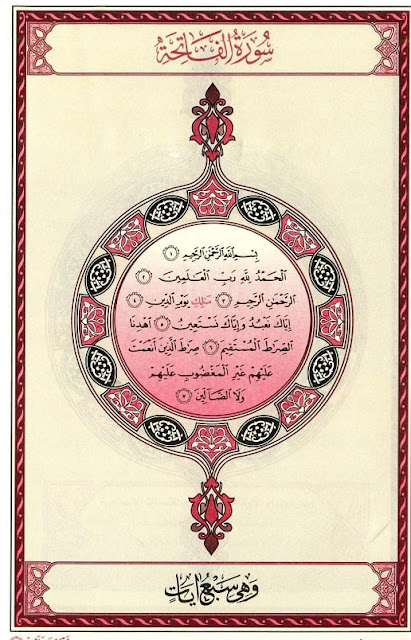 سُورَةُ الفَاتِحَة
بِسْمِ اللَّهِ الرَّحْمَٰنِ الرَّحِيمِ ١
الْحَمْدُ لِلَّهِ رَبِّ الْعَٰلَمِينَ ٢
الرَّحْمَٰنِ الرَّحِيمِ ٣ مَٰلِكِ يَوْمِ الدِّينِ ٤
إِيَّاكَ نَعْبُدُ وَإِيَّاكَ نَسْتَعِينُ ٥ اهْدِنَا
الصِّرَٰطَ الْمُسْتَقِيمَ ٦ صِرَٰطَ الَّذِينَ أَنْعَمْتَ
عَلَيْهِمْ غَيْرِ الْمَغْضُوبِ عَلَيْهِمْ
وَلَا الضَّالِّينَ ٧
وَهِيَ سَبْعُ ءَايَاتٍ